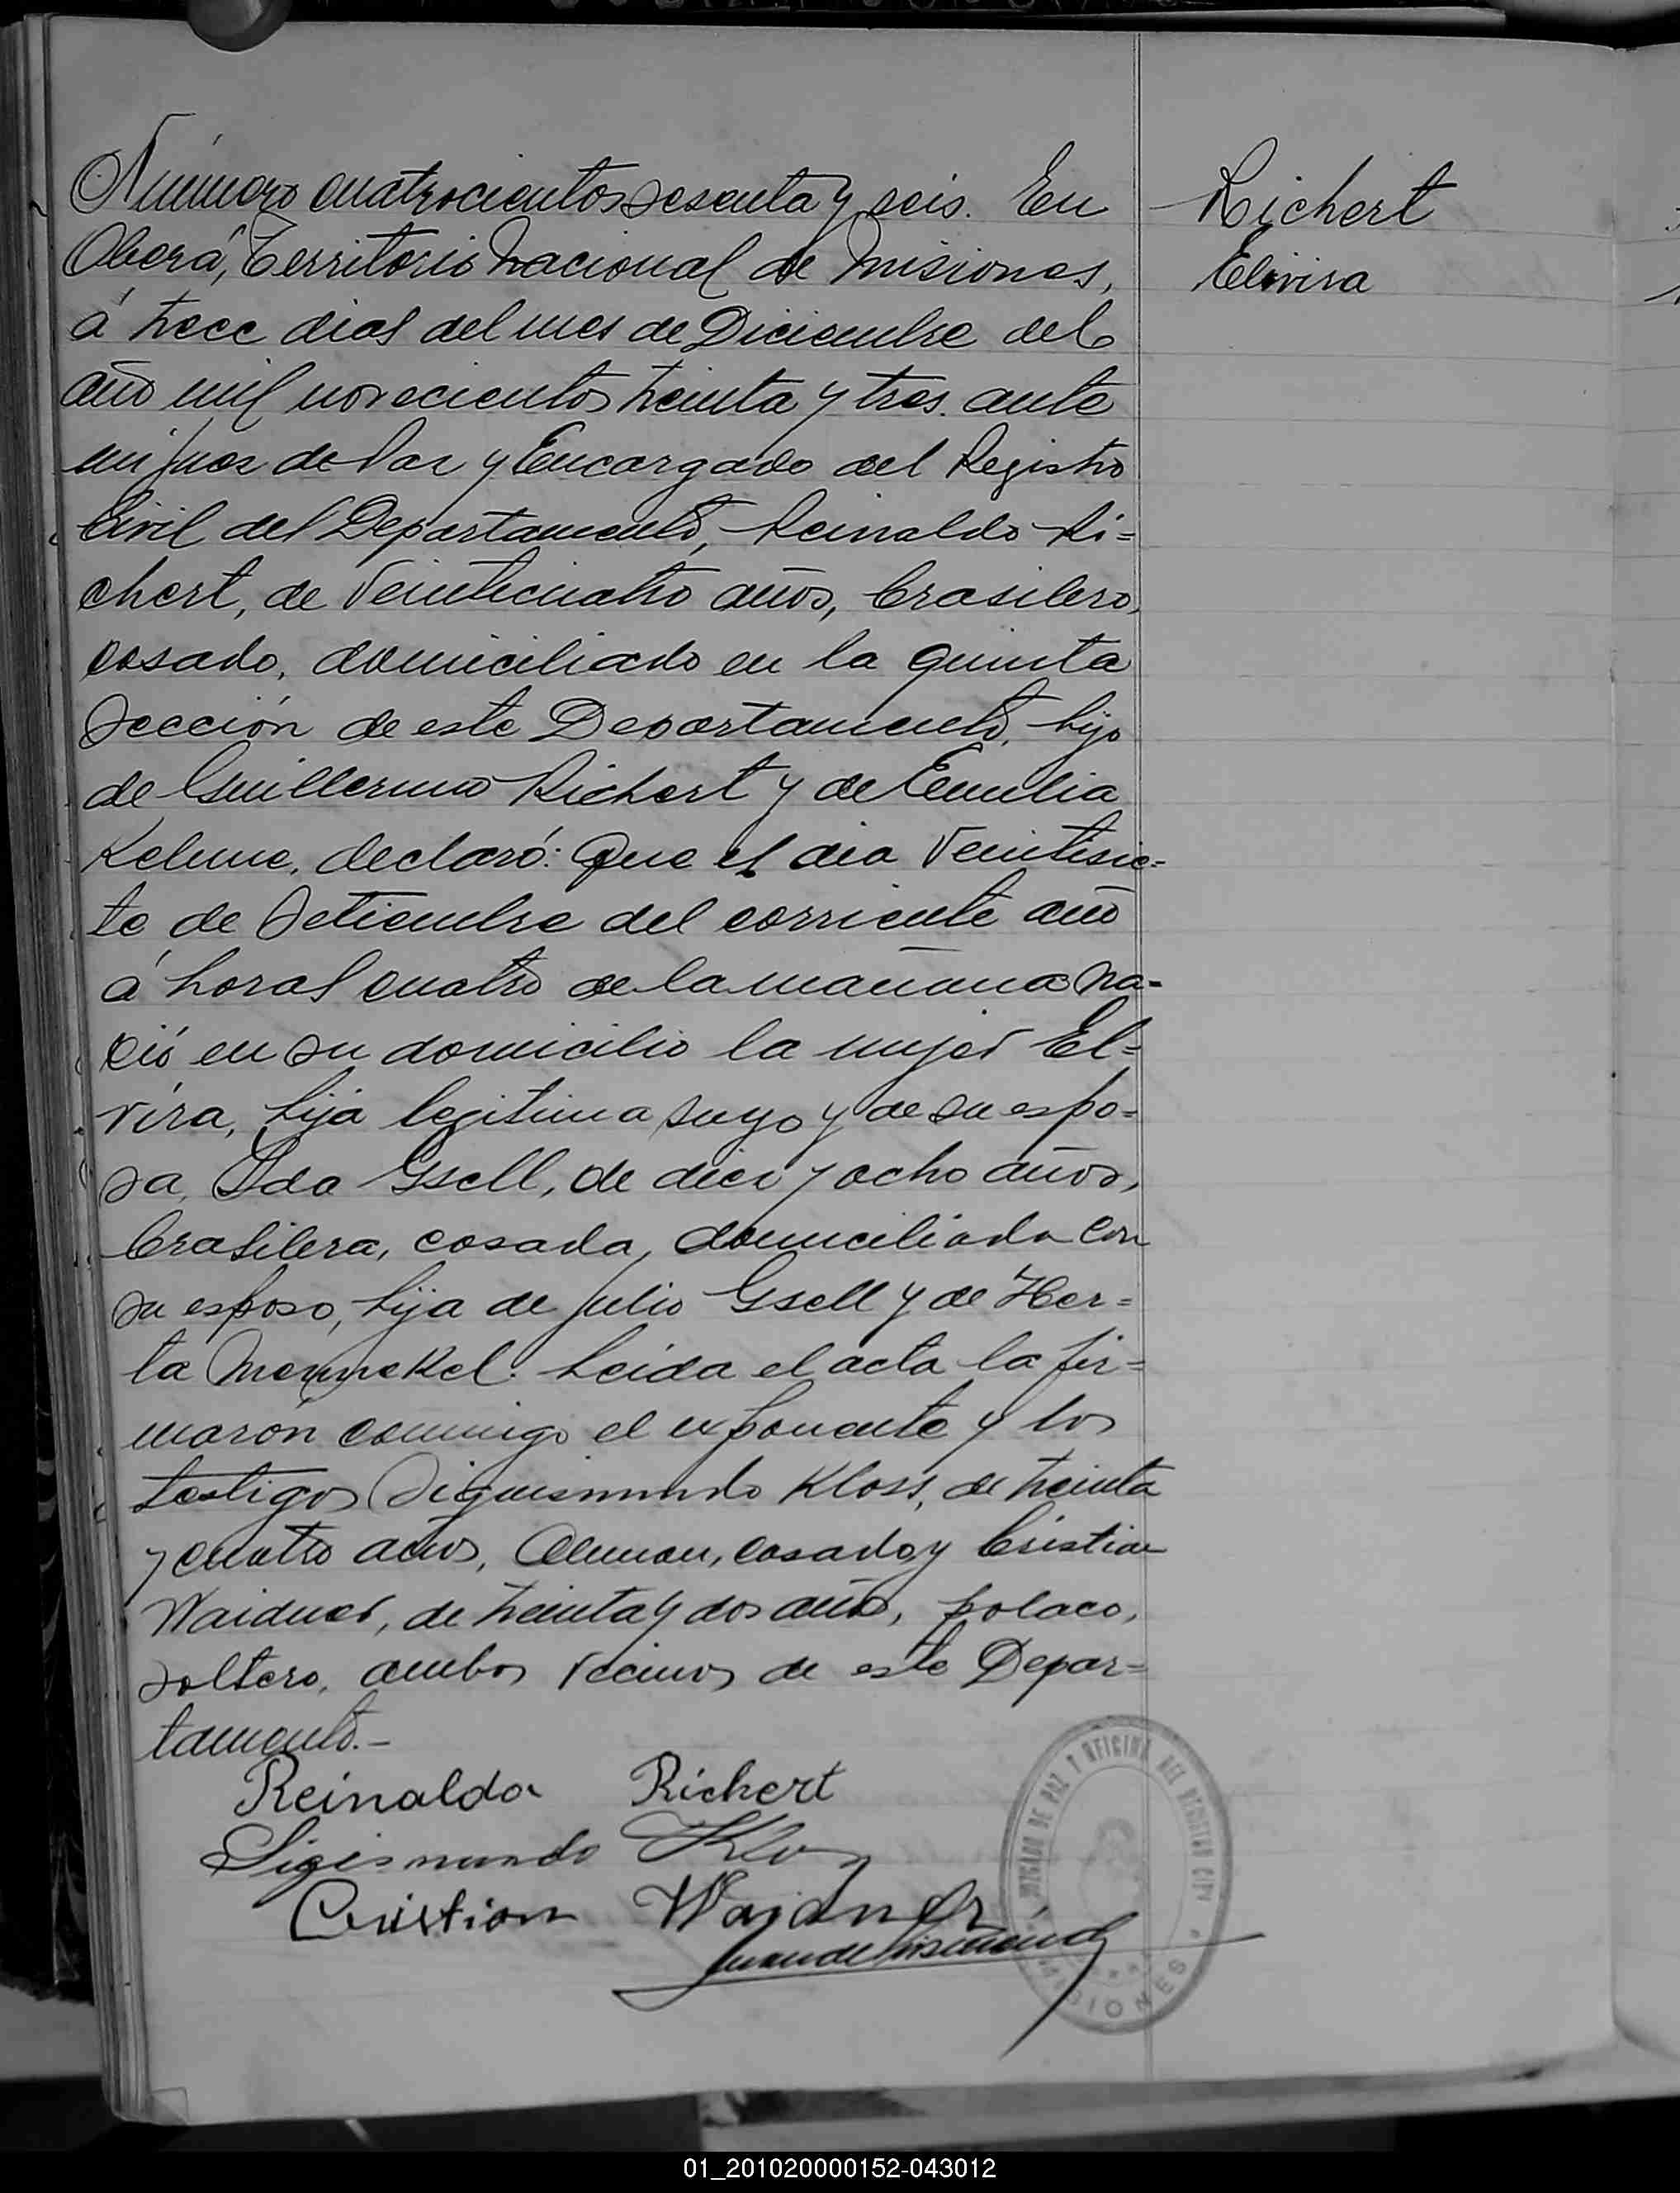 Número cuatrocientos sesenta y seis. En
Oberá, Territorio Nacional de Misiones,
á trece dias del mes de Diciembre del
año mil novecientos treinta y tres. ante
mi Juez de Paz y Encargado del Registro
Civil del Departamento, Reinaldo Ri=
chert, de veinticuatro años, brasilero,
casado, domiciliado en la quinta
Sección de este Departamento, hijo
de Guillermo Richert y de Emilia
declaró: Que el dia veintisie=
te de Setiembre del corriente año
á horas cuatro de la mañana na=
ció en su domicilio la mujer El=
vira, hija legitima suya y de su espo=
sa, Ida Gsell, de diez y ocho años,
brasilera, casada, domiciliada con
su esposo, hija de Julio Gsell y de Her=
ta Leida el acta la fir=
marón conmigo el exponente y los
testigos Siguismundo Kloss, de treinta
y cuatro años, Aleman, casado, y Cristian
Waidner, de treinta y dos años, polaco,
soltero, ambos vecinos de este Depar=
tamento.-
Reinaldo Richert
Sigismundo Klos
Cristian Waidner
Richert
Elvira
JUZGADO DE PAZ Y OFICINA DEL REGISTRO CIVIL
MISIONES
01_201020000152-043012